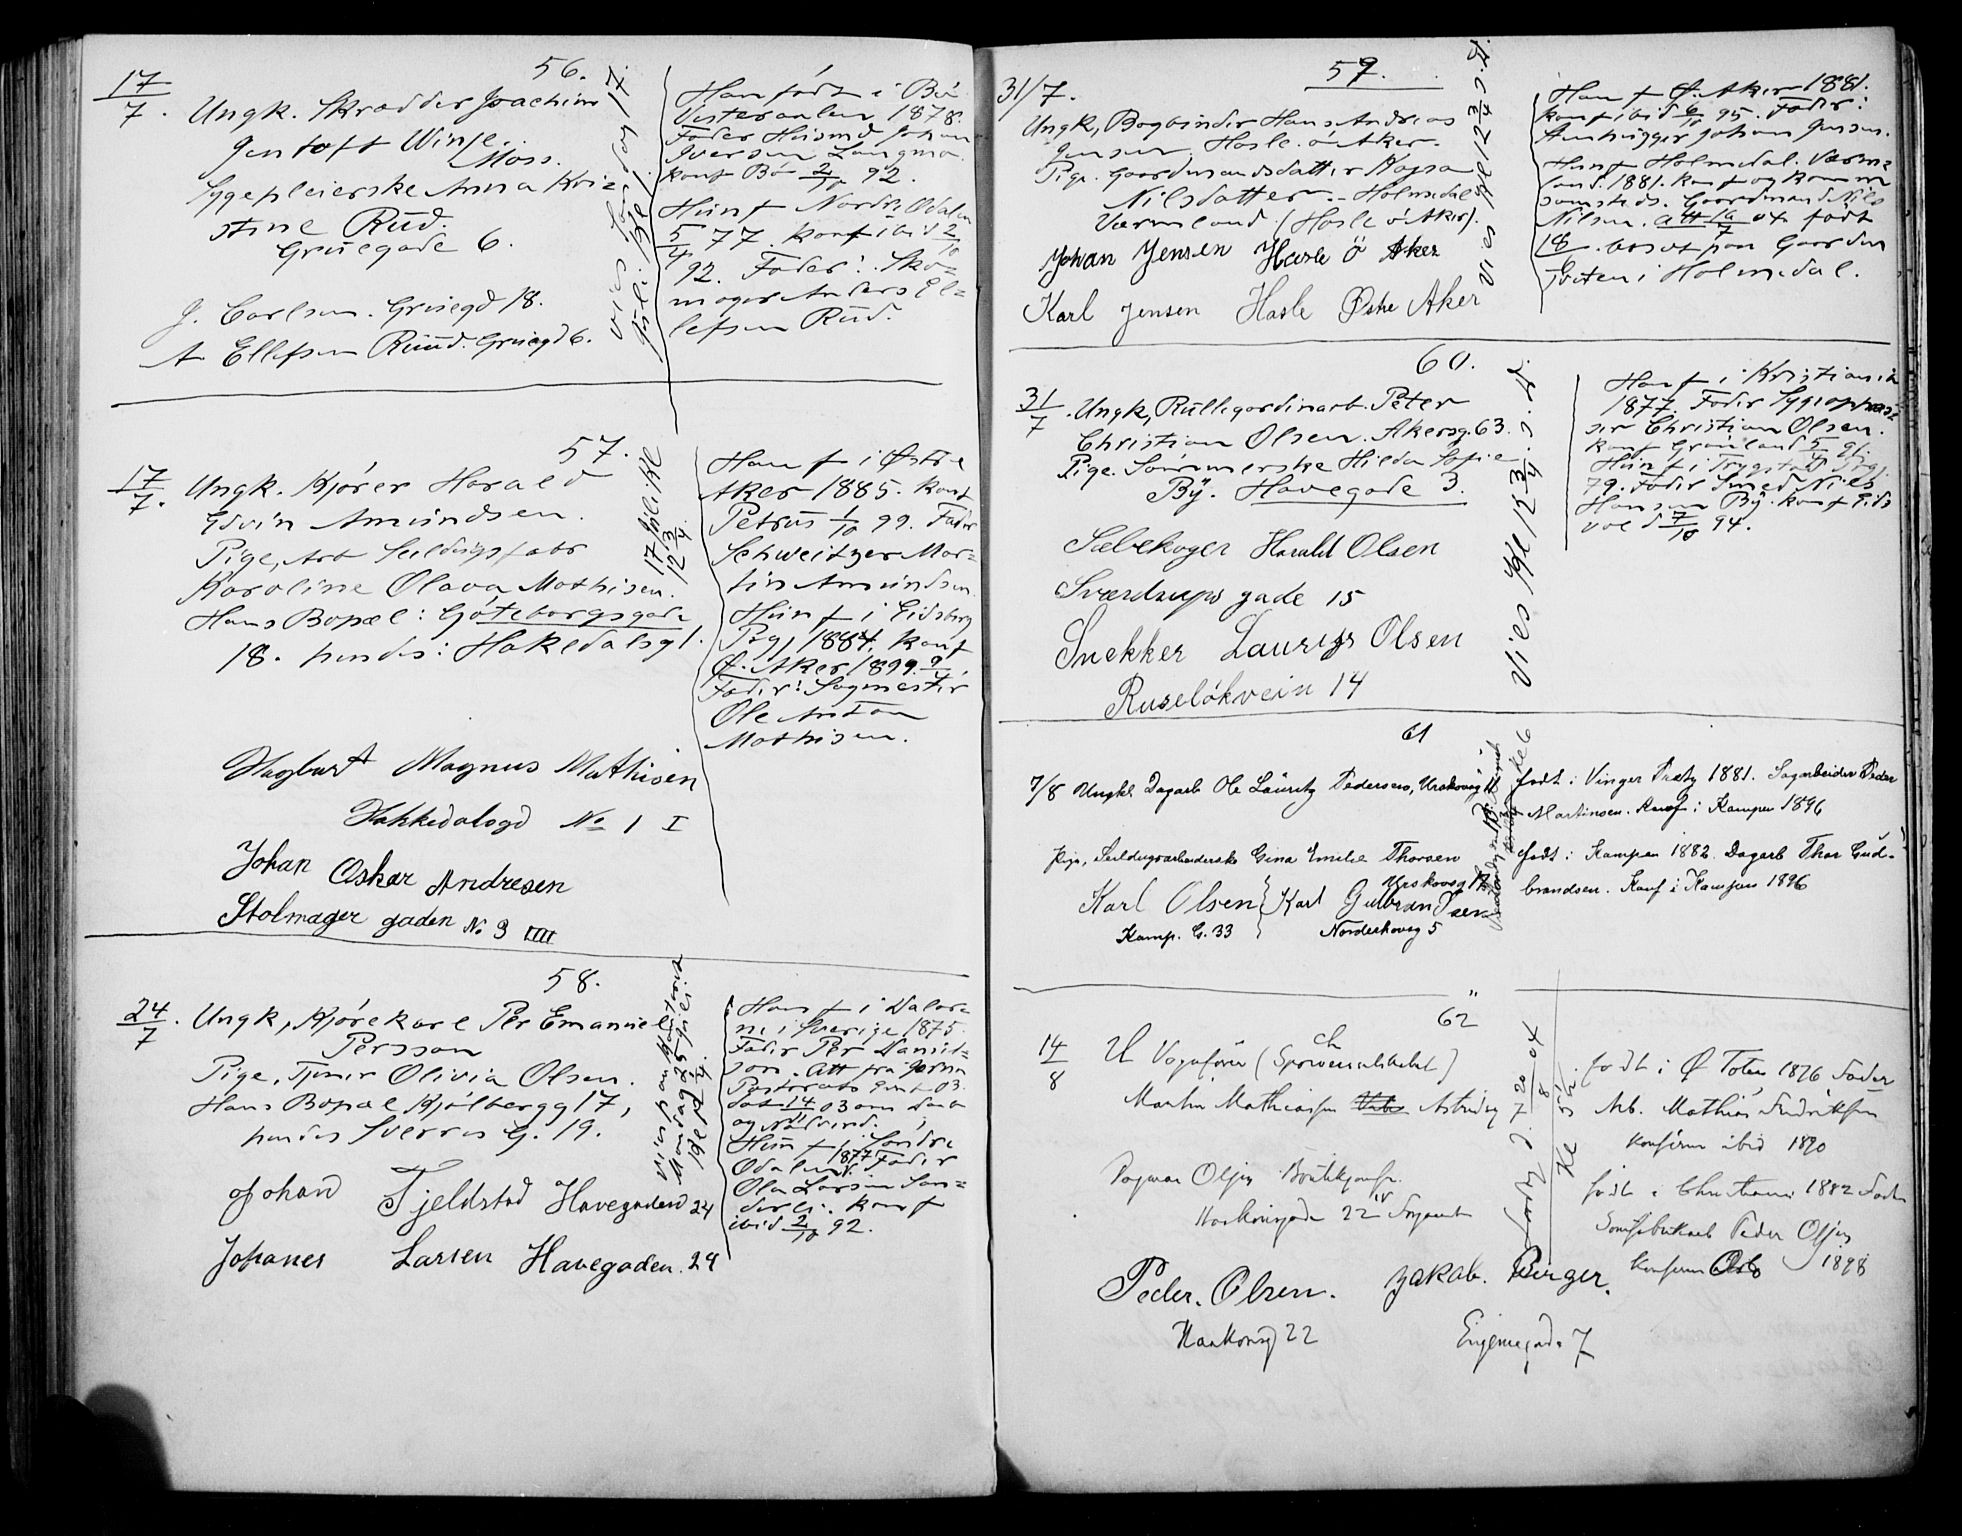 56.
17/7. Ungk. Skrædder Joachim
Jentoft Winje.
Moss.
Sygepleierske Anna Kri=
stine Rud.
Gruegade 6.
J. Carlsen. Gruegd 18.
A Ellefsen Ruud. Gruegd 6.
Han født i Bø
Vesteraalen 1878.
Fader Husmd Johan
Iversen
konf Bø 2/10 92.
Hun f Nordre Odalen
5/4 77. konf ibid 2/10
92. Fader: Sko=
mager Anders El=
lefsen Rud.
57.
17/7. Ungk. Kjører Harald
Edvin Amundsen.
Pige, Arb Seildugsfabr
Karoline Olava Mathisen.
Hans Bopæl: Göteborgsgade
18. hendes: Hakedalsg 1.
17/7 Kl
12 3/4.
Han f i Østre
Aker 1885. konf
Petrus 1/10 99. Fader
Schweitzer Mar=
tin Amundsen
Hun f i Eidsberg
Pgj 1884. konf
Ø. Aker 1899.
Fader: Sagmester
Ole Anton
Mathisen.
Hagbart Magnus Mathisen
Hakkedalsgd No 1 I
Johan Oskar Andresen
Stolmager gaden No 9 IIII
58.
24/7. Ungk, Kjørekarl Per Emanuel
Persson
Pige, Tjener Olivia Olsen.
Hans Bopæl Kjølbergg 17,
hendes Sverres G. 19.
Mandag 25
Han f i Dalar=
ne i Sverige 1875.
Fader Per Daniel=
son. Att fra
Pastorats
dat 14/11 03 om Daab
og
Hun f i Søndre
Odalen 1877. Fader
Ole Larsen San=
der konf
ibid 2/10 92.
Johan Fjeldstad Havegaden 24
Johanes Larsen Havegaden. 24
59.
31/7.
Ungk, Bogbinder Hans Andreas
Jensen, Hasle ö Aker.
Pige. Gaardmandsdatter Kajsa
Nilsdatter - Holmedal
Værmland (Hasle ö Aker).
Johan Jensen Hasle ö Aker
Karl Jensen Hasle Østre Aker
Vies Kl 12 3/4 s. D.
Han f Ø. Aker 1881.
konf ibid 6/10 95. Fader:
Stenhugger Johan Jensen.
Hun f Holmedal. Værm=
land. 1881. konf og komm
sammested. Gaardmand Nils
Nilsen. Att 16/7 04 født
18. bosat paa Gaarden
i Holmedal.
60.
31/7. Ungk, Rullegardinarb. Peter
Christian Olsen. Akersg. 63.
Pige. Sømmerske Hilda Sofie
By. Havegade 3.
Sæbekoger Harald Olsen
Sværdrups gade 15
Snekker Lauritz Olsen
Ruseløkvein 14
Vies Kl 12 3/4 s. D.
Han f i Kristiania
1877. Fader Sygeopvas=
ser Christian Olsen.
konf Grønland 5/4 91.
Hun f i Trygstad Pgj.
79. Fader Smed Nils
Hansen By. konf Eids
vold 7/10 94.
61
7/8 Ungkl Dagarb Ole Lauritz Pedersen, Urskovsg 11
Pige, Seildugsarbeiderske Gina Emilie Thorsen
Urskovsg 17
Karl Olsen Karl Gulbransen
Kamp. G. 33 Nordeskovsg 5
født i Vinger Prstg 1881. Sagarbeider Peder
Martinsen. Konf i Kampen 1896
født i Kampen 1882. Dagarb Thor Gud=
brandsen. Konf i Kampen 1896
62
14/8 U Vognfører (Sporveiselskabet)
Martin Mathiassen Astrudsg
Dagmar Olsen Butikjomfr.
Haakonsgade 22 IV
Lørdag d. 20/8 04
Kl
født i Ø Toten 1876 Fader
Arb. Mathias Fredriksen
konfirm ibid 1890
født i Christiania 1882 Fader
Peder Olsen
konfirm Oslo 1898
Peder. Olsen. Jakob. Birger.
Haakonsg 22 Eugeniegade 7